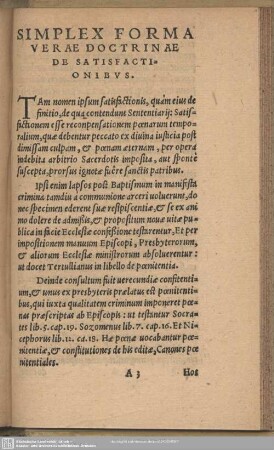 SIMPLEX FORMA
VERAE DOCTRINAE
DE SATISFACTI-
ONIBVS.
TAm nomen ipsum satisfactionis, quàm eius de
finitio, de qua contendunt Sententiarij: Satis-
factionem esse recompensationem pœnarum tempo-
ralium, quæ debentur peccato ex diuina iusticia post
dimissam culpam, & pœnam æternam, per opera
indebita arbitrio Sacerdotis imposita, aut spontè
suscepta, prorsus ignotæ fuêre sanctis patribus.
Ipsi enim lapsos post Baptismum in manifesta
crimina tamdiu a communione arceri uoluerunt, do
nec specimen ederent suæ resipiscentiæ, & se ex ani
mo dolere de admissis, & propositum nouæ uitæ pu-
blica in facie Ecclesiæ confessione testarentur, Et per
impositionem manuum Episcopi, Presbyterorum,
& aliorum Ecclesiæ ministrorum absoluerentur:
ut docet Tertullianus in libello de pœnitentia.
Deinde consultum fuit uerecundiæ confitentiũ,
& unus ex presbyteris prælatus est pœnitenti-
bus, qui iuxta qualitatem criminum imponeret pœ-
nas præscriptas ab Episcopis: ut testantur Socra-
tes lib. 5. cap. 19. Sozomenus lib. 7. cap. 16. Et Ni-
cephorus lib. 12. ca. 28. Hæ pœnæ uocabantur pœ-
nitentiæ, & constitutiones de his editæ, Canones pœ-
nitentiales.
A 3 Hos